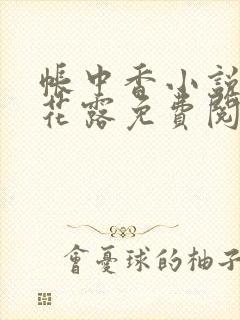 帳中香小說
花露免費閱
會憂球的柚子